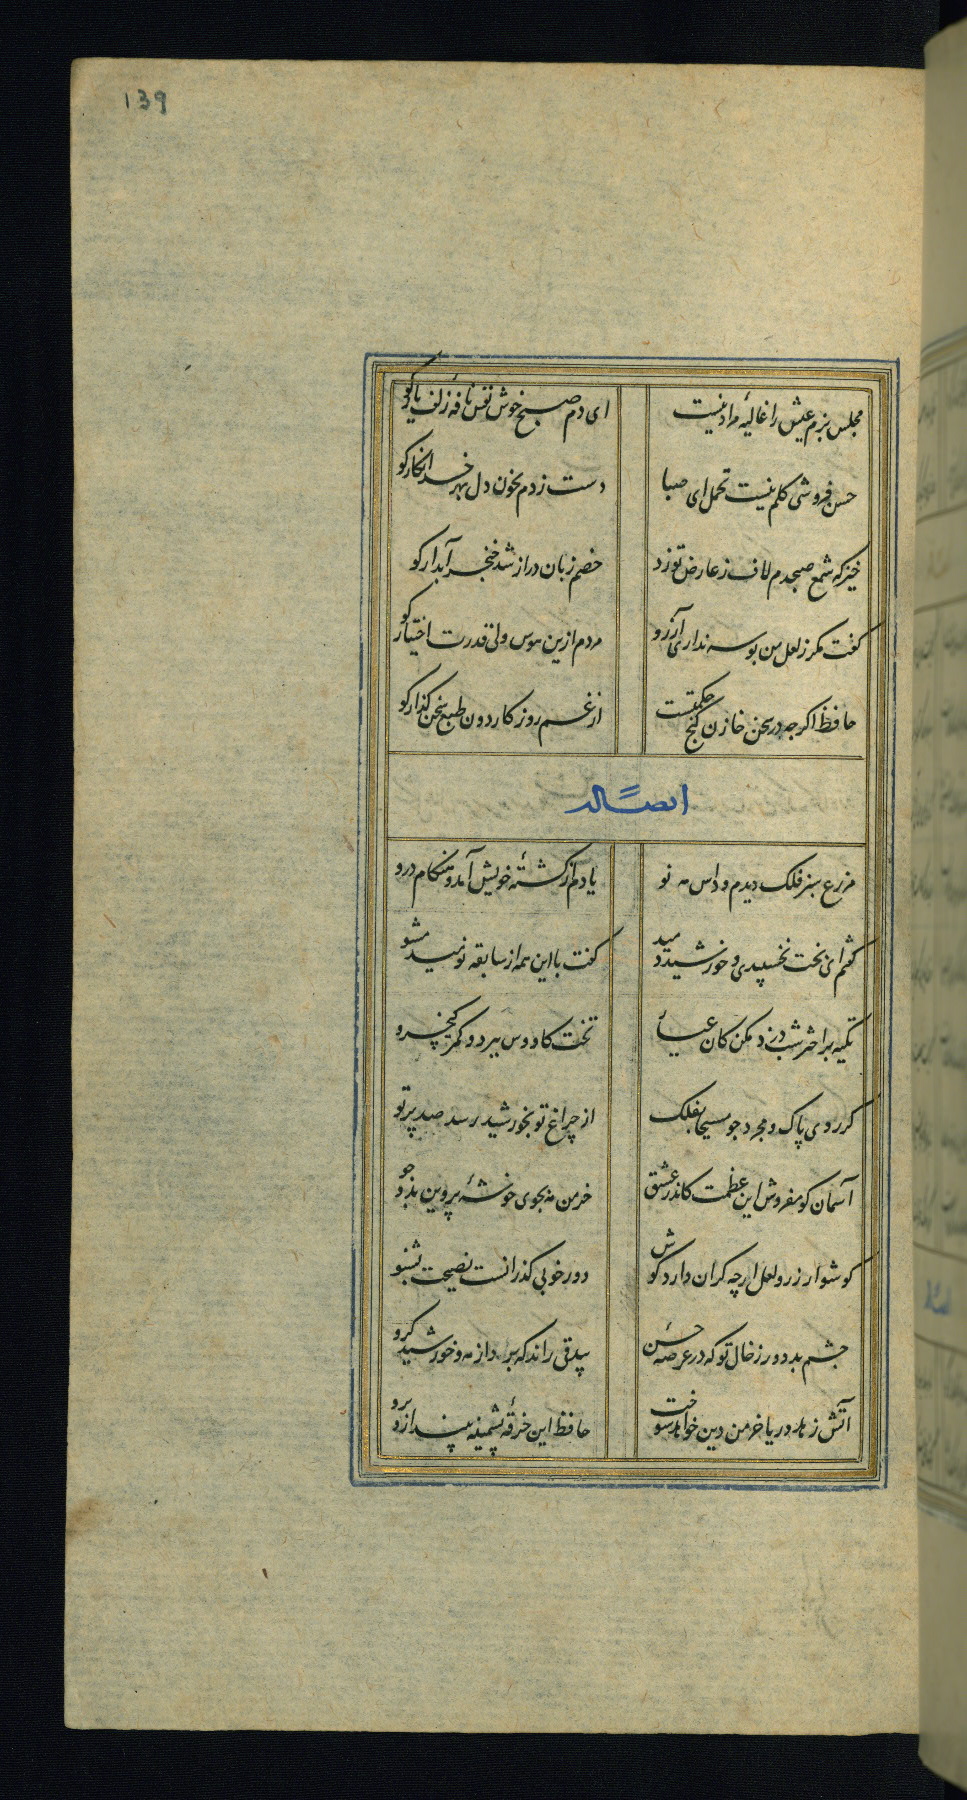 139
مجلس بزم عیش را غالیه مراد نیست ای دم صبح خوش نفس نافه زلف یار کو
حسن فروشی کلم نیست تحمل ای صبا دست زدم بخون دل بهر خدا نکار کو
خیز که شمع صبحدم لاف ز عارض تو زد خصم زبان دراز شد خنجر آبدار کو
کفت مکر ز لعل من بوسه نداری آرزو مردم ازین هوس ولی قدرت اختیار کو
حافظ اکرچه در سخن خازن کنج حکمتست از غم روزکار دون طبع سخن کذار کو
ایضاً له
مزرع سبز فلک دیدم و داس مه نو یادم از کشتهٔ خویش آمد و هنکام درو
کفتم ای بخت بخسپیدی و خورشید دمید کفت با این همه از سابقه نومید مشو
تکیه بر اختر شب دزد مکن کان عیار تخت کاووس ببرد و کمر کیخسرو
کر روی پاک و مجرد چو مسیحا بفلک از چراغ تو بخورشید رسد صد پرتو
آسمان کو مفروش این عظمت کاندر عشق خرمن مه بجوی خوشهٔ پروین بدو جو
کوشوار زر و لعل ارچه کران دارد کوش دور خوبی کذرانست نصیحت بشنو
چشم بد دور ز خال تو که در عرصهٔ حسن بیدقی راند که برد از مه و خورشید کرو
آتش زهد و ریا خرمن دین خواهد سوخت حافظ این خرقهٔ پشمینه بینداز و برو